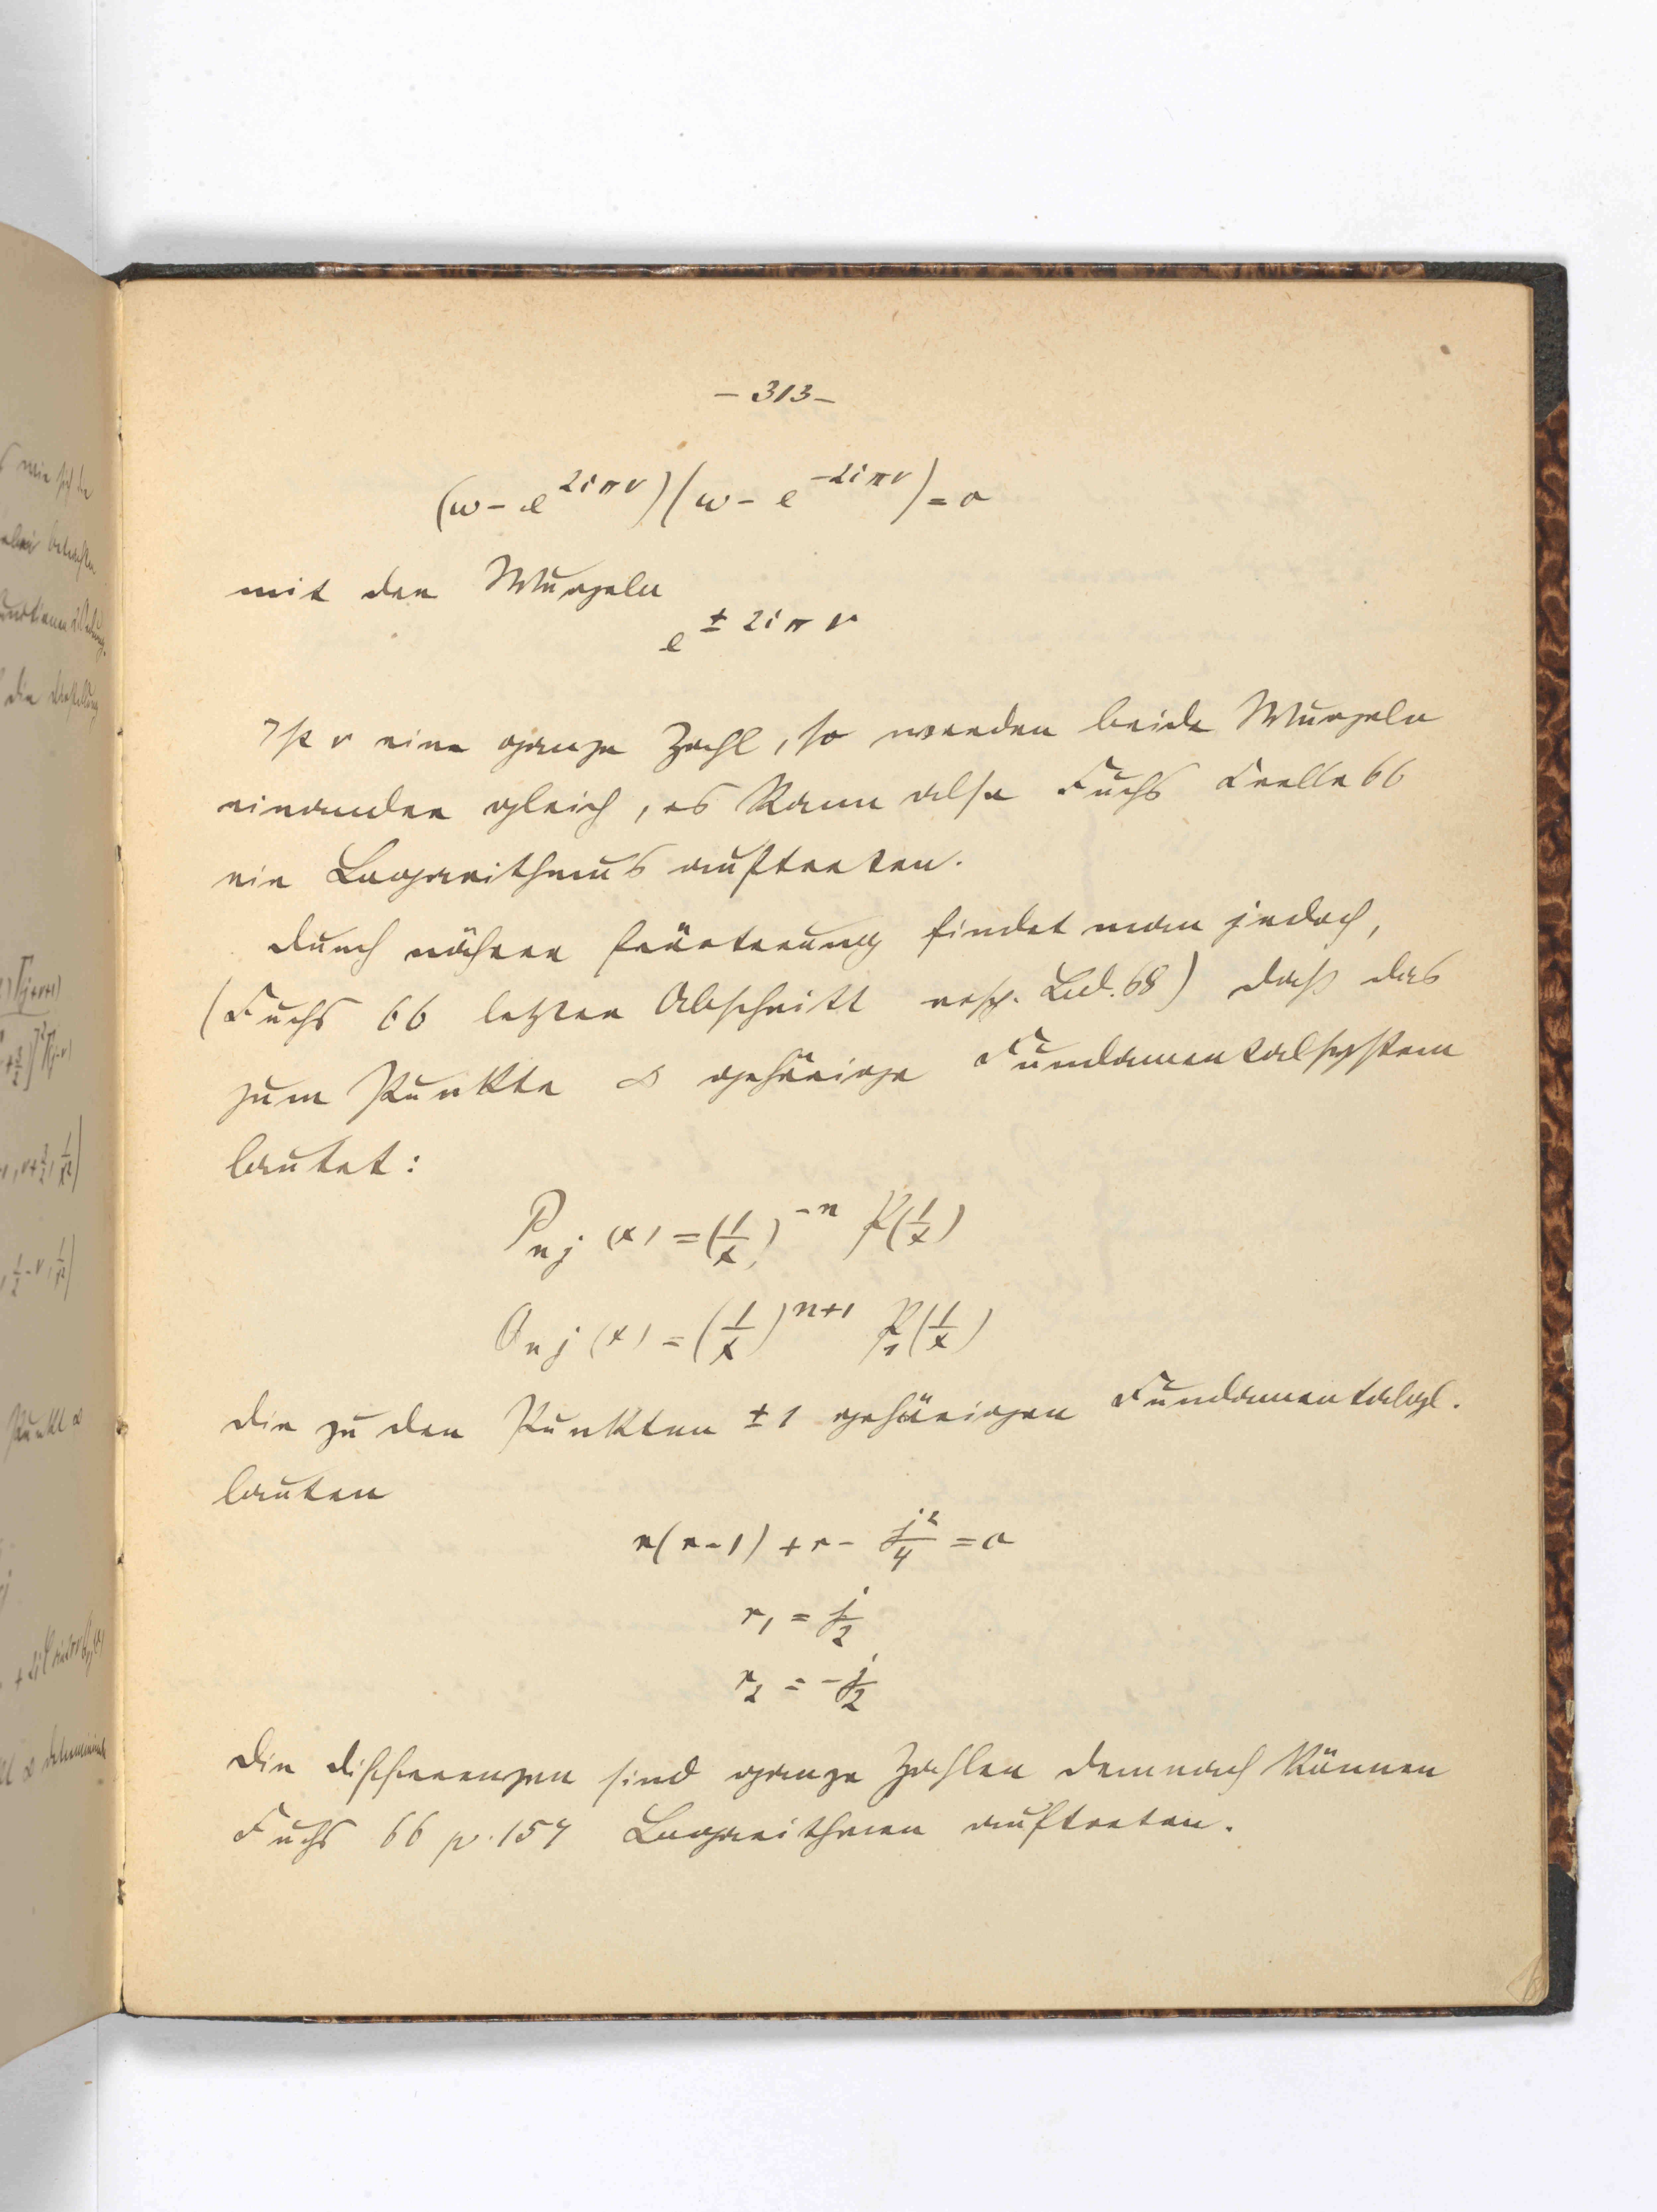 – 313 –
(ω – e^{2iπν})(ω – e^{-2iπν}) = 0
mit den Wurzeln
e^{± 2iπν}
Ist ν eine ganze Zahl, so werden beide Wurzeln
einander gleich, es kann also Fuchs Crelle 66
ein Logarithmus auftreten.
Durch nähere Erörterung findet man jedoch,
(Fuchs 66 letzter Abschnitt resp. Bd. 68) daß das
zum Punkte ∞ gehörige Fundamentalsystem
lautet:
P_{nj}(x) = (1/x)^{-n} P(1/x)
Q_{nj}(x) = (1/x)^{n+1} P_1(1/x)
Die zu den Punkten ± 1 gehörigen Fundamentalgl.
lauten
r(r-1) + r - j²/4 = 0
r_1 = j/2
r_2 = -j/2
Die Differenzen sind ganze Zahlen demnach können
Fuchs 66 p. 157 Logarithmen auftreten.